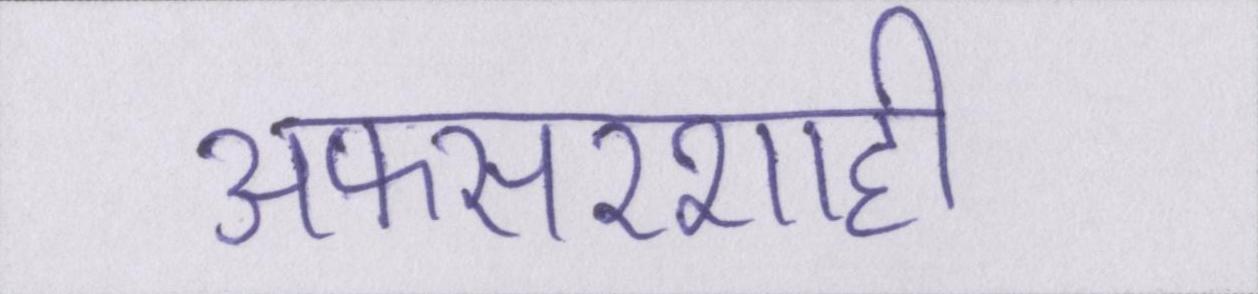 अफसरशाही